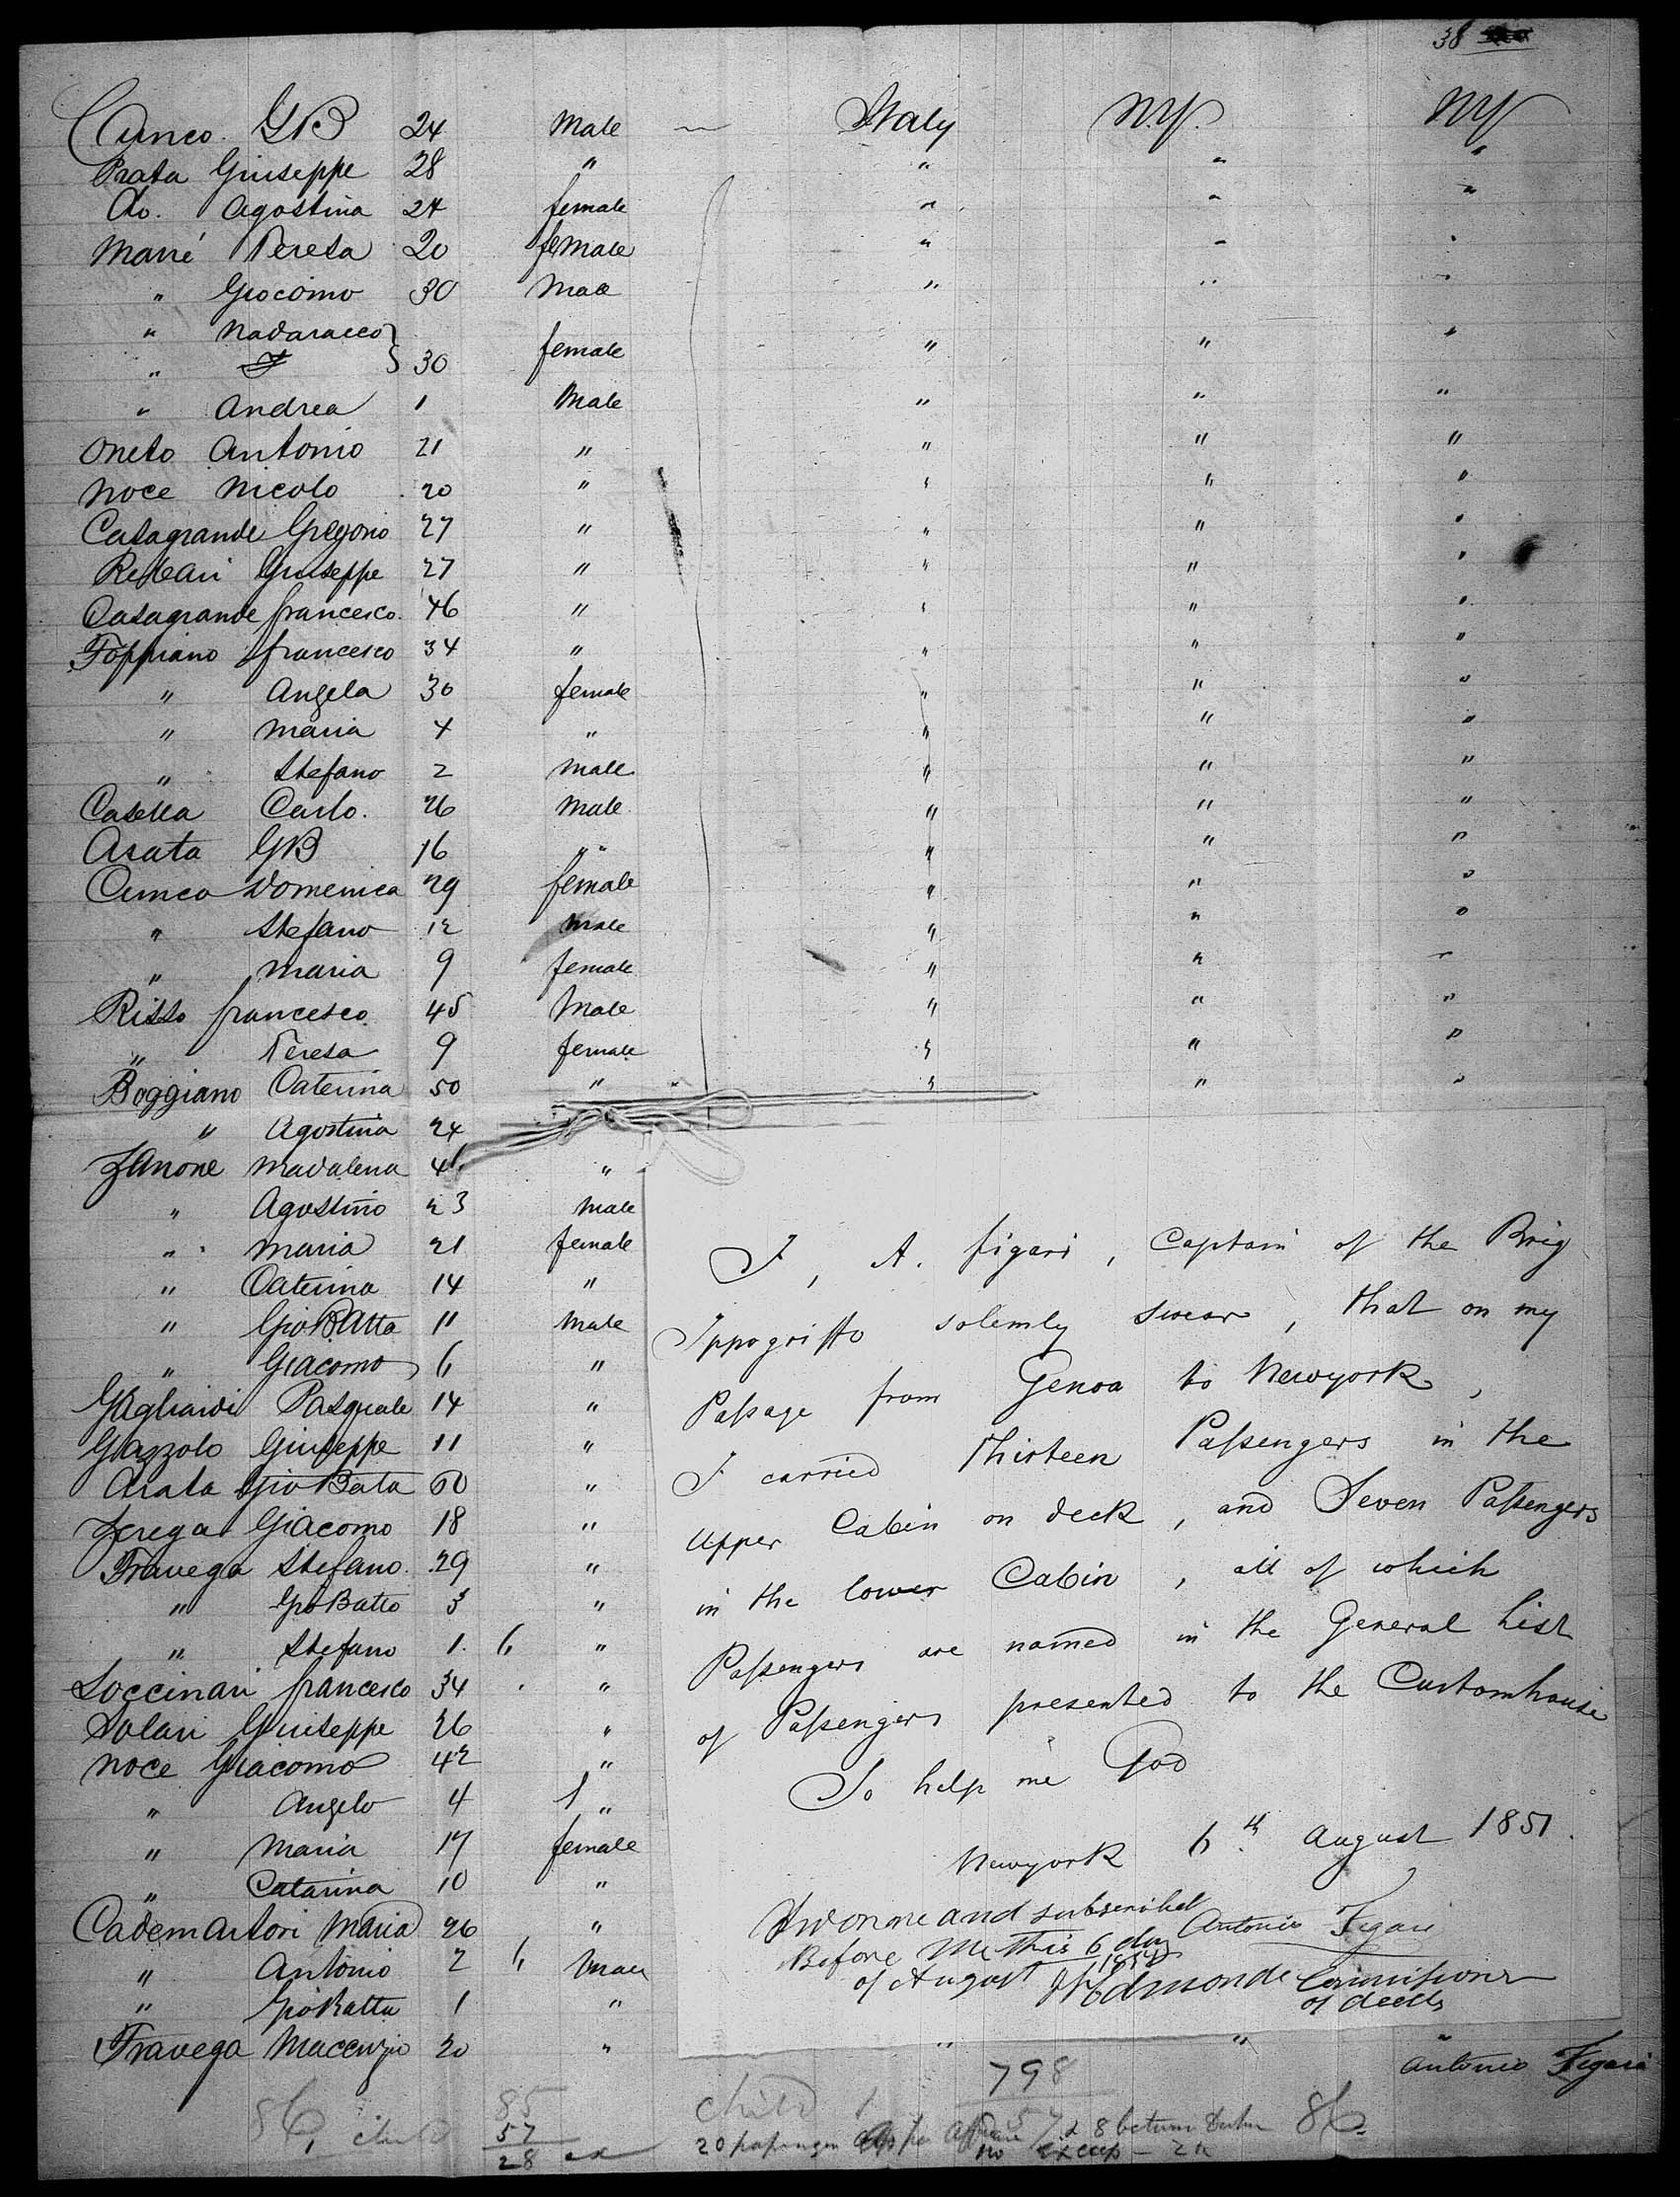 38
Cuneo GB 24 Male — Italy N.Y. NY
Prata Giuseppe 28 " " " "
Do. Agostina 24 female " " "
Marré Teresa 20 female " " "
" Giocomo 30 Male " " "
" Nadaracco }
" 30 female " " "
" Andrea 1 Male " " "
Oneto Antonio 21 " " " "
Noce Nicolo 20 " " " "
Casagrande Gregorio 27 " " " "
Giuseppe 27 " " " "
Casagrande francesco. 46 " " " "
Foppiano francesco 34 " " " "
" Angela 30 female " " "
" Maria 4 " " " "
" Stefano 2 male " " "
Casella Carlo. 26 male " " "
Arata GB 16 " " " "
Cuneo Domenica 29 female " " "
" Stefano 12 male " " "
" Maria 9 female " " "
Risso francesco 45 Male " " "
" Teresa 9 female " " "
Boggiano Caterina 50 " " " "
" Agostina 24
Zanone Madalena "
" Agostino 23 male
" Maria 21 female
" Caterina 14 "
" Gio Batta 11 Male
" Giacomo 6 "
Gagliardi Pasquale 14 "
Gazzolo Giuseppe 11 "
Arata Gio Bata 60 "
Zerega Giacomo 18 "
Fravega Stefano. 29 "
" Gio Batto 3 "
" Stefano 1. 6 "
Soccinari francesco 34 "
Solari Giuseppe 26 "
Noce Giacomo 42 "
" Angelo 4 1 "
" Maria 17 female
" Catarina 10 "
Cademartori Maria 26 "
" Antonio 2 6 Male
" Gio Batta 1 "
Fravega 20 " " " "
I, A. figari, Captain of the Brig
Ippogriffo solemly swear, that on my
Passage from Genoa to Newyork,
I carried Thirteen Passengers in the
upper Cabin on deck, and Seven Passengers
in the lower Cabin, all of which
Passengers are named in the General List
of Passengers presented to the Customhouse
So help me God
Newyork 6th August 1851.
Sworn me and subscribed
Antonio Figari
Before Me this 6 day
of August 1851
Edmonds Commissioner
of deeds
Antonio Figari
798
86, child
85
57
28
child 1
57
20
86